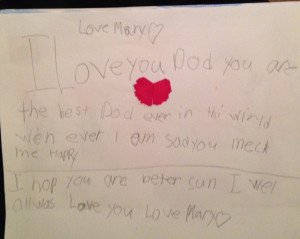 Love Mary
I Love you Dad you are
the best Dad ever in thi wirld
wen ever I am sad you meck
me Happy
I hop you are beter sun I wel
allwas Love you Love Mary